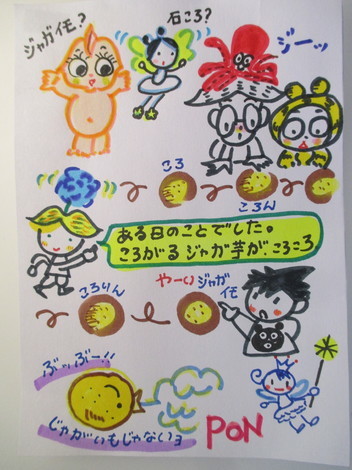 ジャガイモ?
石ころ?
ジーッ
ころ
ころん
ある日のことでした。
ころがるジャガ芋がころころ
ころりん
やーいジャガ
イモ
ぶッぶー!!
じゃがいもじゃないョ
PON